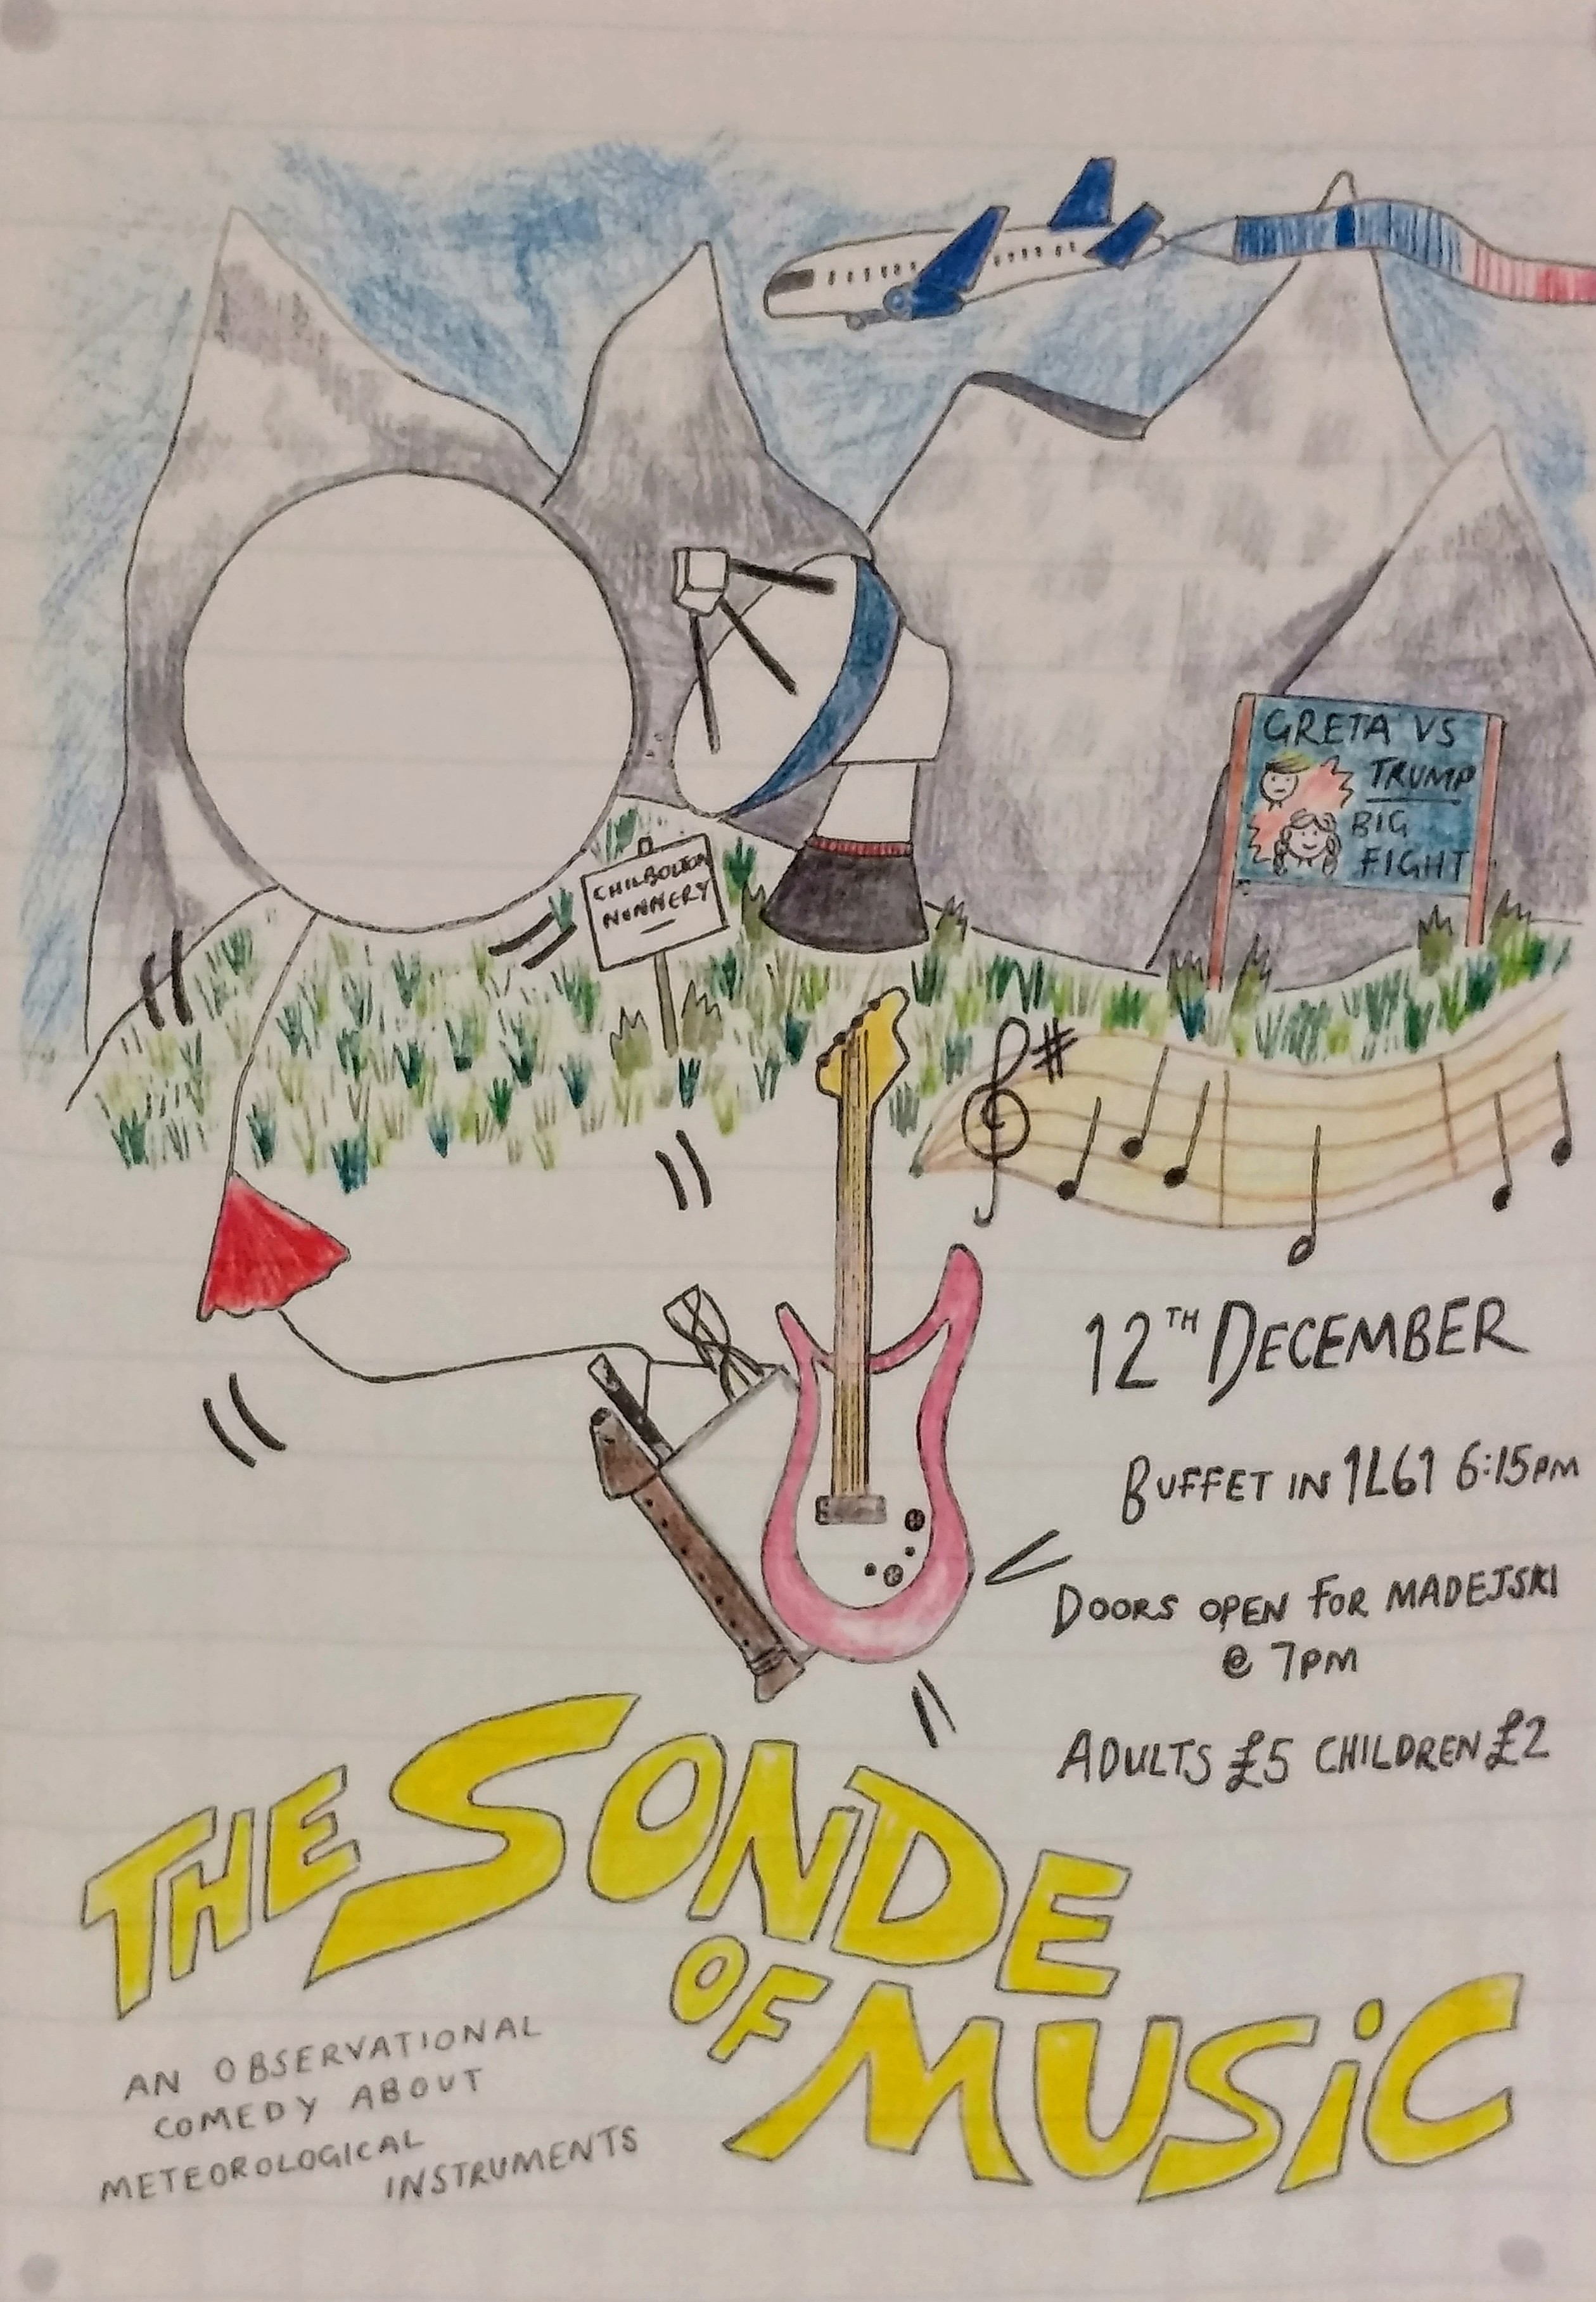 GRETA VS
TRUMP
BIG
FIGHT
CHILBOLTON
NUNNERY
12TH DECEMBER
BUFFET IN 1L61 6:15PM
DOORS OPEN FOR MADEJSKI
@ 7PM
ADULTS £5 CHILDREN £2
THE SONDE
OF MUSIC
AN OBSERVATIONAL
COMEDY ABOUT
METEOROLOGICAL
INSTRUMENTS